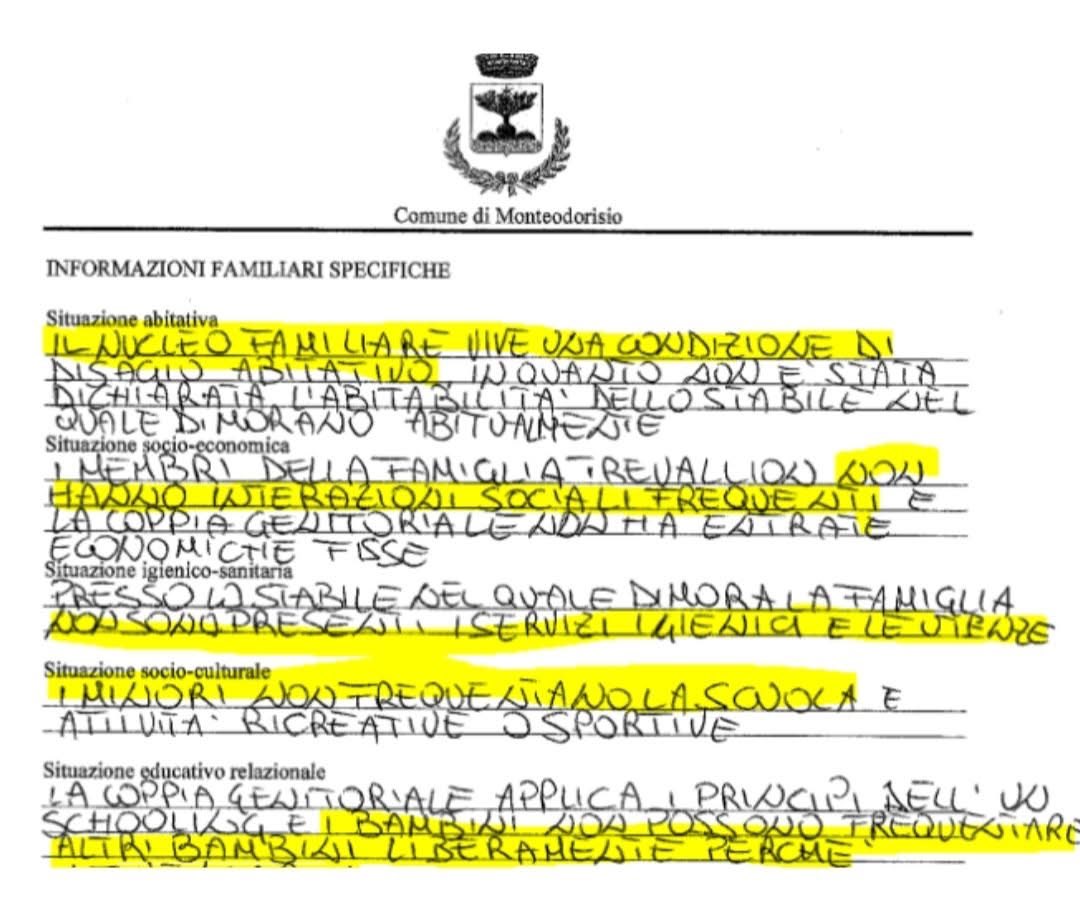 Comune di Monteodorisio
INFORMAZIONI FAMILIARI SPECIFICHE
Situazione abitativa
IL NUCLEO FAMILIARE VIVE UNA CONDIZIONE DI
DISAGIO ABITATIVO IN QUANTO NON E' STATA
DICHIARATA L'ABITABILITA' DELLO STABILE NEL
QUALE DIMORANO ABITUALMENTE
Situazione socio-economica
I MEMBRI DELLA FAMIGLIA TREVALLION NON
HANNO INTERAZIONI SOCIALI FREQUENTI E
LA COPPIA GENITORIALE NON HA ENTRATE
ECONOMICHE FISSE
Situazione igienico-sanitaria
PRESSO LO STABILE NEL QUALE DIMORA LA FAMIGLIA
NON SONO PRESENTI I SERVIZI IGIENICI E LE UTENZE
Situazione socio-culturale
I MINORI NON FREQUENTANO LA SCUOLA E
ATTIVITA' RICREATIVE O SPORTIVE
Situazione educativo relazionale
LA COPPIA GENITORIALE APPLICA I PRINCIPI DELL' UN
SCHOOLING E I BAMBINI NON POSSONO FREQUENTARE
ALTRI BAMBINI LIBERAMENTE PERCHE'